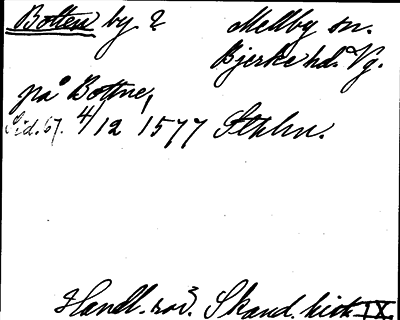 Botten by ? Mellby sn.
Bjerke hd. Vg.
på Bottne,
Sid. 67. 4/12 1577 Sthlm.
Handl. rör. Skand. hist. IX.